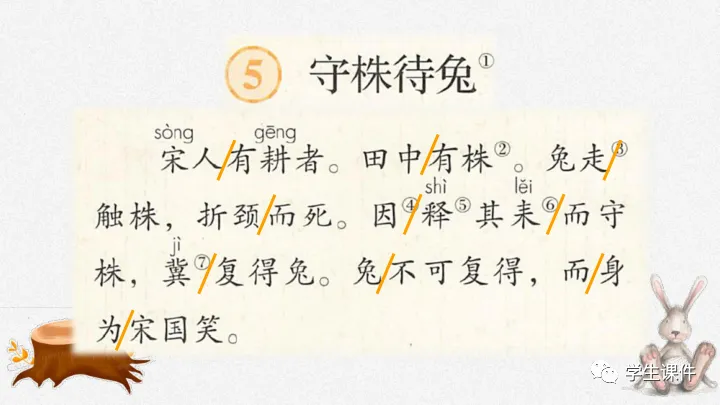 5 守株待兔①
sòng gēng
宋人/有耕者。田中/有株②。兔走/③
触株，折颈/而死。因④/释⑤其耒⑥/而守
shì lěi
株，冀⑦/复得兔。兔/不可复得，而/身
jì
为/宋国笑。
学生课件